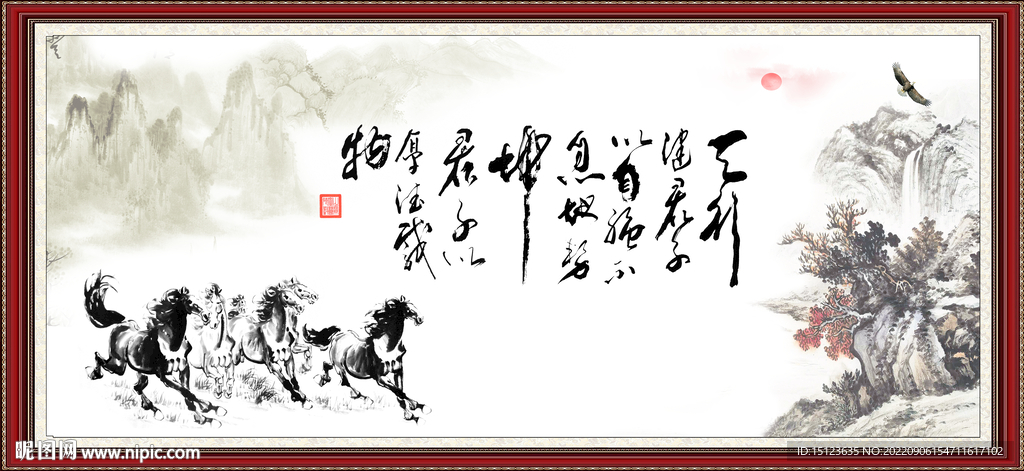 天行
健君子
以自强不
息地势
坤
君子以
厚德载
物
昵图网 www.nipic.com
ID:15123635 NO:20220906154711617102